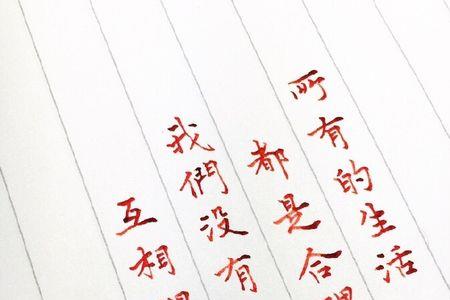 所有的生活
都是合
我們没有
互相